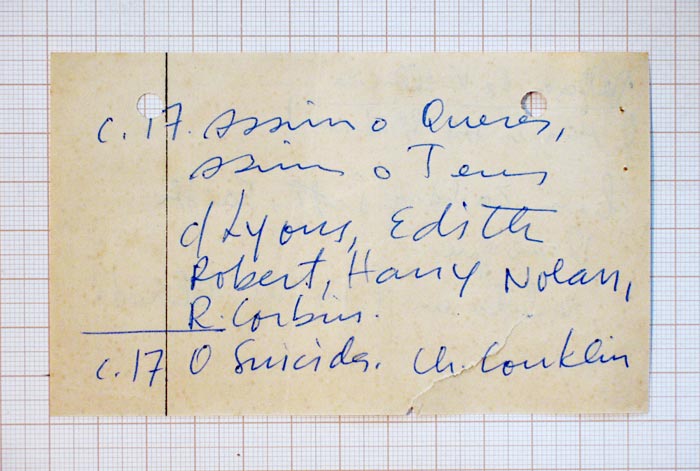 c. 17. Assim o Queres,
Assim o Tens
c/ Lyons, Edith
Robert, Harry Nolan,
R. Corbin.
c. 17 O Suicida. Ch. Conklin